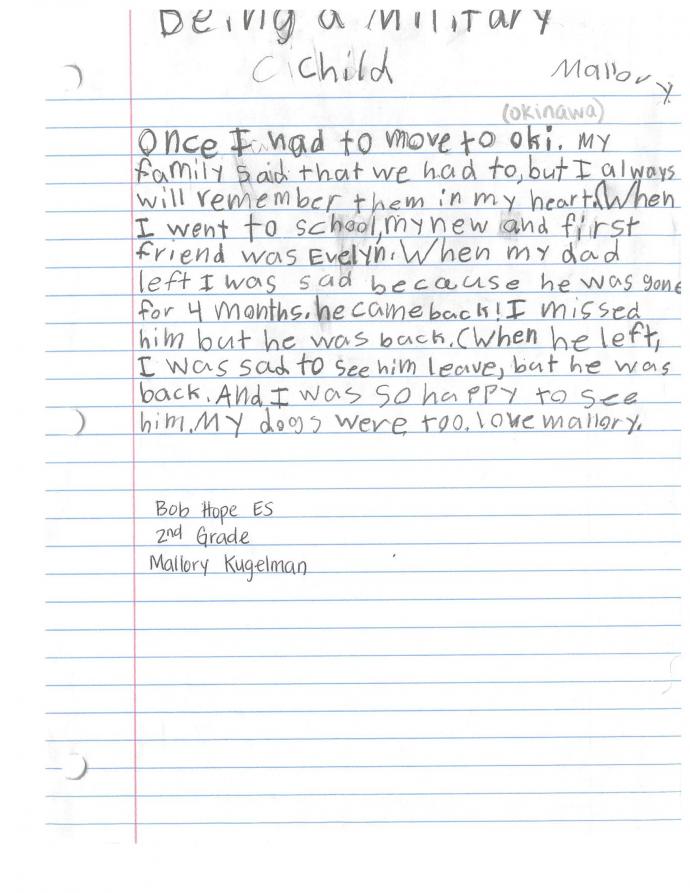 Being a Military
Child
Mallory
(okinawa)
Once I had to move to oki. My
family said that we had to, but I always
will remember them in my heart. (When
I went to school, my new and first
friend was Evelyn. When my dad
left I was sad because he was gone
for 4 months. he came back! I missed
him but he was back. (When he left,
I was sad to see him leave, but he was
back. And I was so happy to see
him. My dogs were too. love mallory.
Bob Hope ES
2nd Grade
Mallory Kugelman